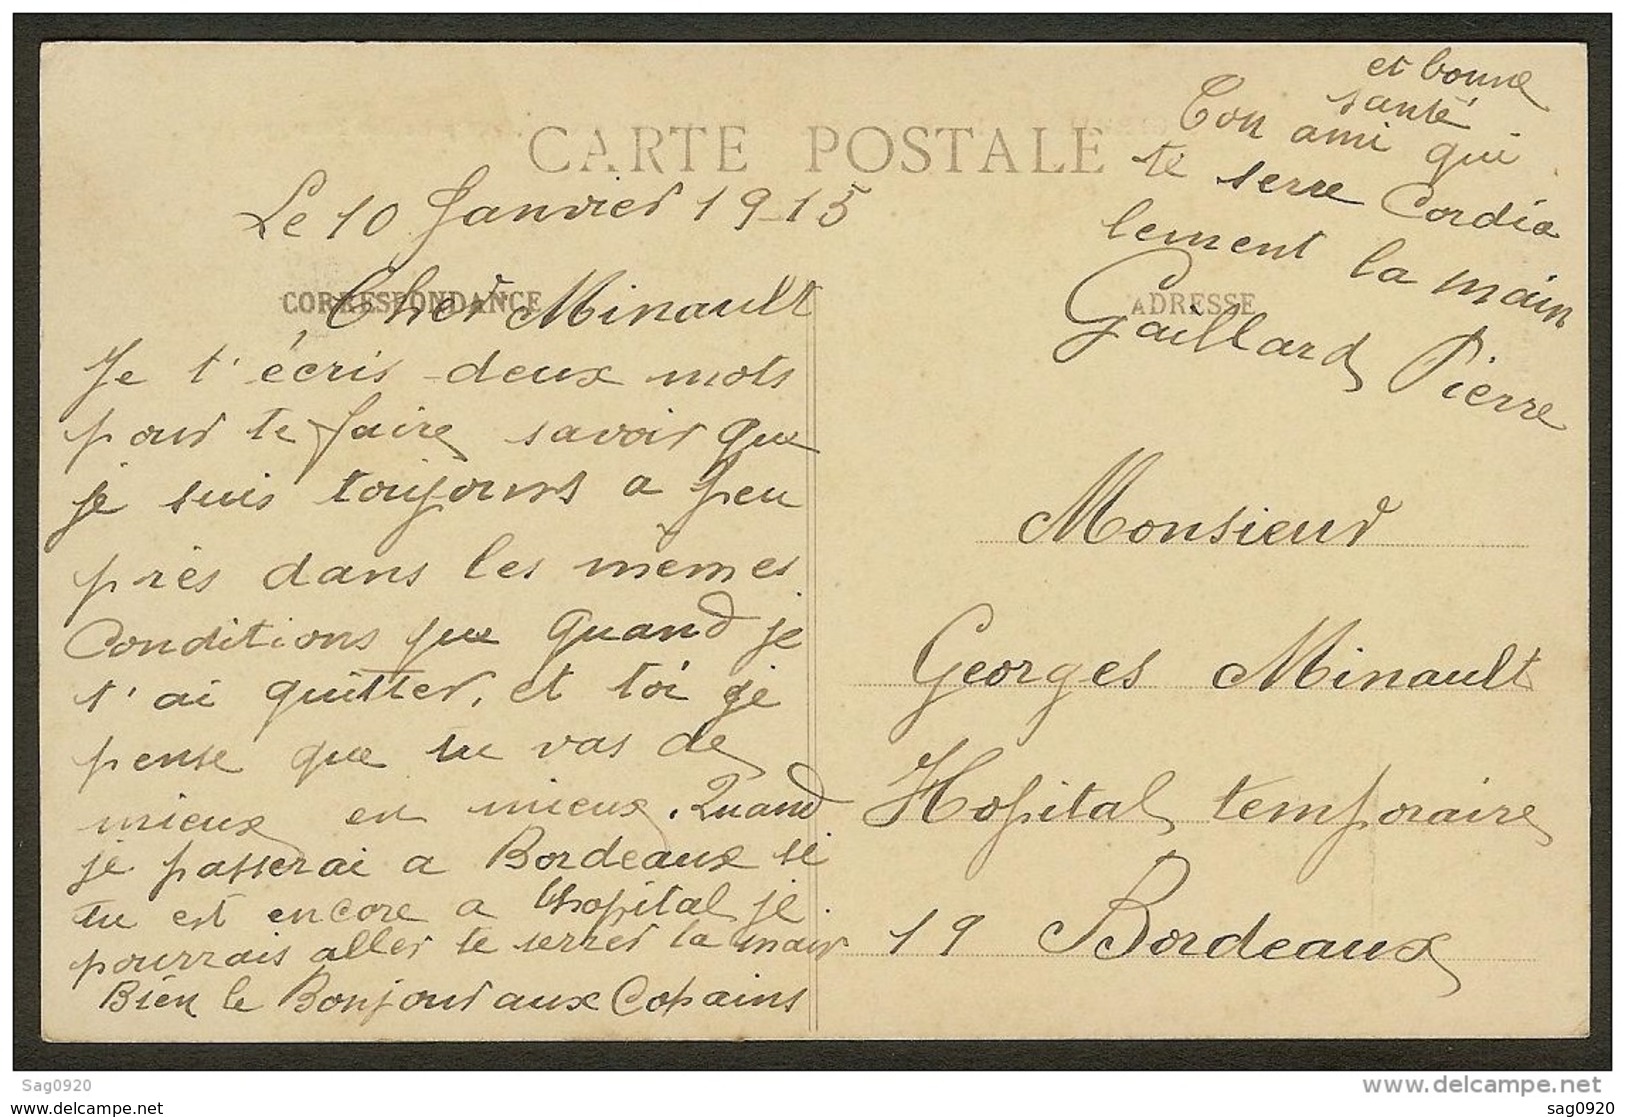 CARTE POSTALE
Le 10 Janvier 1915
CORRESPONDANCE
Cher Minault
Je t'écris deux mots
pour te faire savoir que
je suis toujours a peu
près dans les mêmes
Conditions que quand je
t'ai quitter, et toi je
pense que tu vas de
mieux en mieux. Quand
je passerai a Bordeaux si
tu est encore a l'hopital je
pourrais aller te serrer la main
Bien le Bonjour aux Copains
et bonne
santé
Ton ami qui
te serre Cordia
lement la main
ADRESSE
Gaillard Pierre
Monsieur
Georges Minault
Hopital temporaire
19 Bordeaux
Sag0920
www.delcampe.net
Sag0920
Sag0920